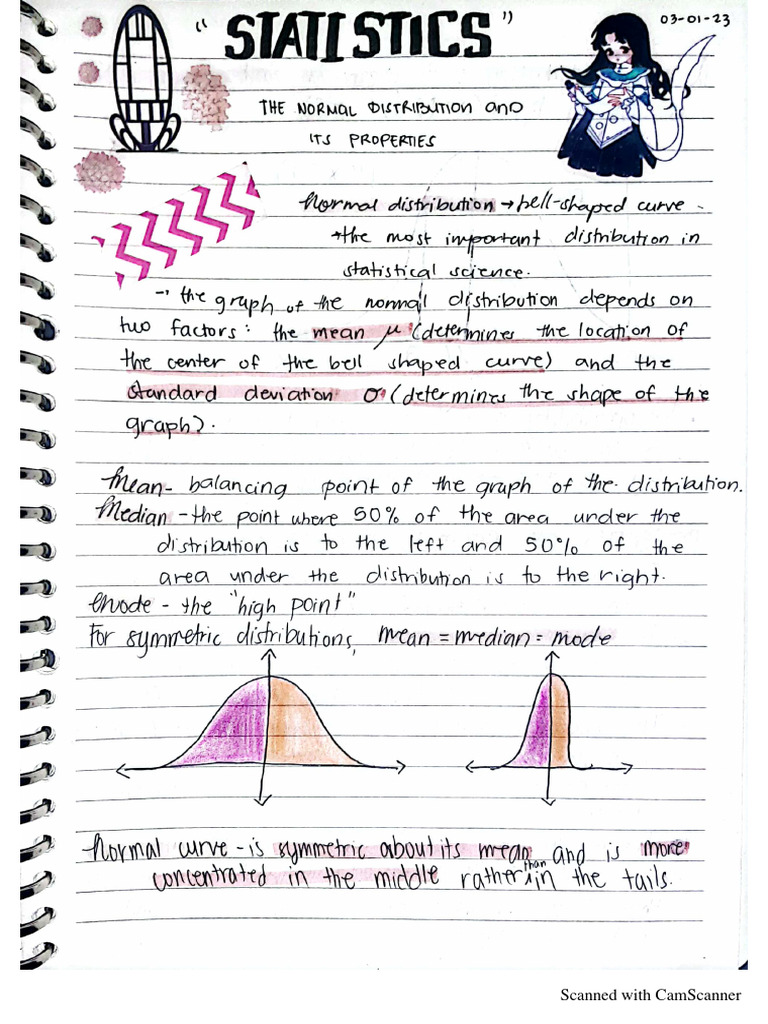 "STATISTICS"
03-01-23
THE NORMAL DISTRIBUTION and
ITS PROPERTIES
Normal distribution → bell-shaped curve -
→the most important distribution in
statistical science.
→ the graph of the normal distribution depends on
two factors: the mean μ (determines the location of
the center of the bell shaped curve) and the
standard deviation σ (determines the shape of the
graph).
Mean - balancing point of the graph of the distribution.
Median - the point where 50% of the area under the
distribution is to the left and 50% of the
area under the distribution is to the right.
Mode - the "high point"
For symmetric distributions, mean = median = mode
Normal curve - is symmetric about its mean and is more
concentrated in the middle rather than in the tails.
Scanned with CamScanner